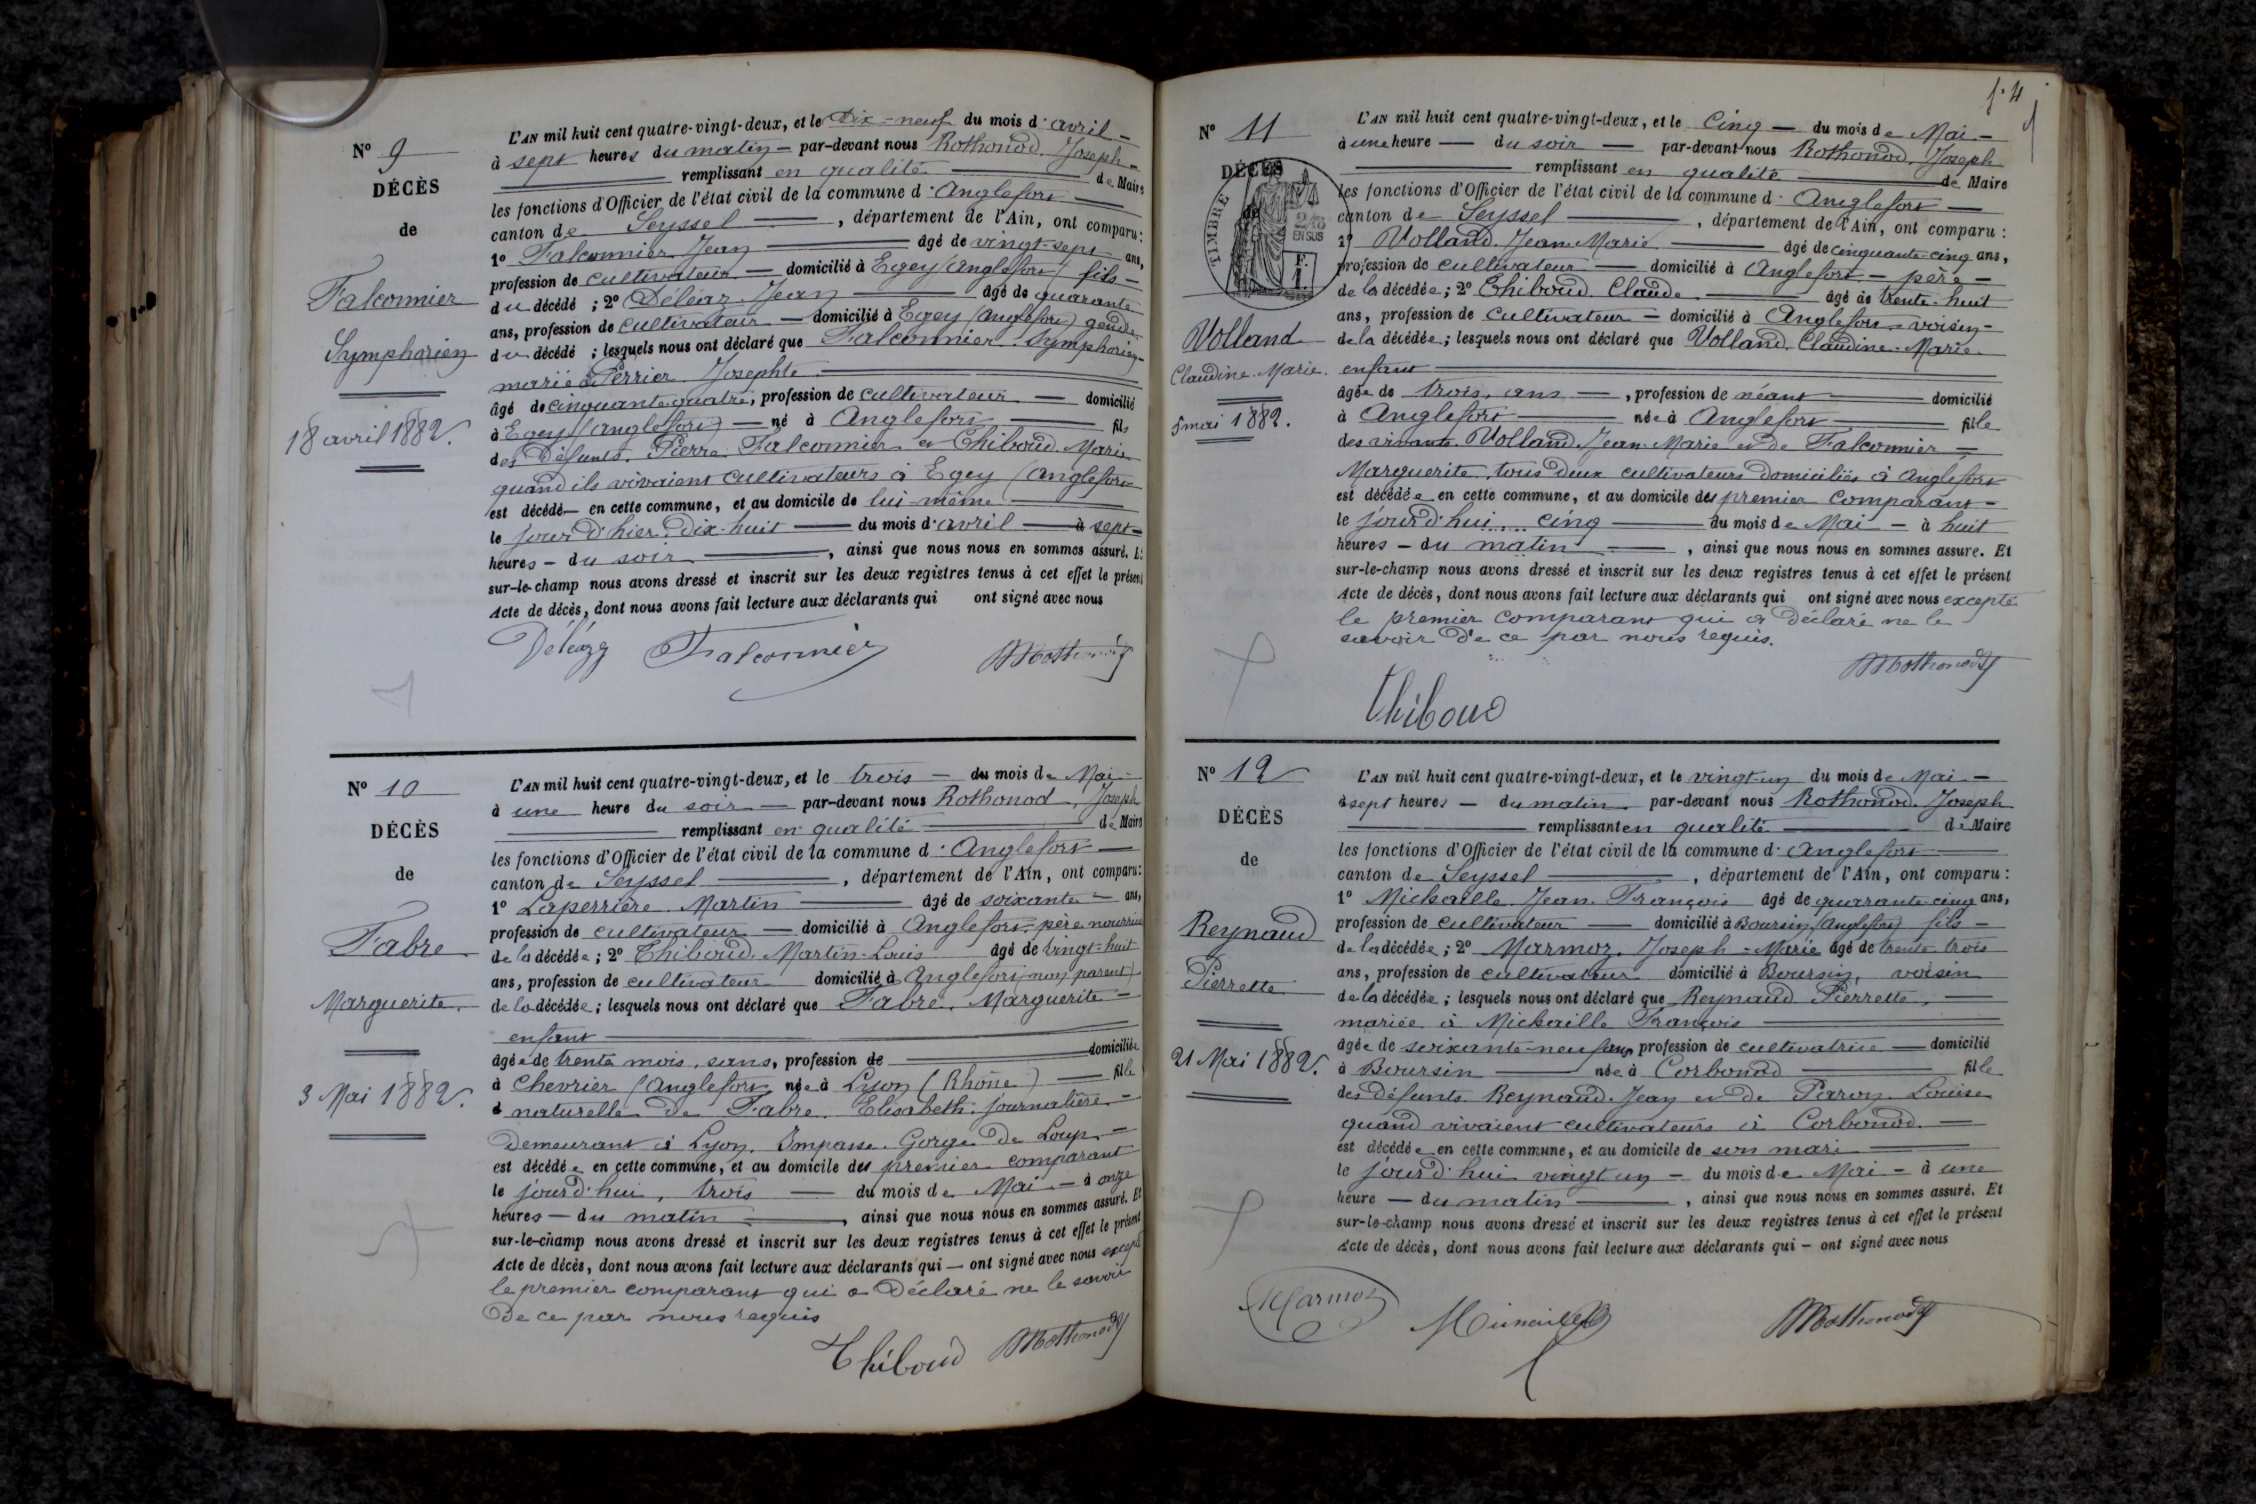 N° 9
DÉCÈS
de
Falconnier
Symphorien
18 avril 1882.
L'AN mil huit cent quatre-vingt-deux, et le Dix-neuf du mois d'avril
à sept heures du matin par-devant nous Rothonod Joseph
remplissant en qualité de Maire
les fonctions d'Officier de l'état civil de la commune d'Anglefort
canton de Seyssel, département de l'Ain, ont comparu :
1° Falconnier Jean âgé de vingt-sept ans,
profession de cultivateur domicilié à Egey (Anglefort) fils
du décédé ; 2° Déléaz Jean âgé de quarante
ans, profession de cultivateur domicilié à Egey (Anglefort) gendre
du décédé ; lesquels nous ont déclaré que Falconnier Symphorien
marié à Perrier Josephte
âgé de cinquante quatre, profession de cultivateur domicilié
à Egey (Anglefort) né à Anglefort fils
des Défunts Pierre Falconnier et Thiboud Marie
quand ils vivaient cultivateurs à Egey (Anglefort
est décédé en cette commune, et au domicile de lui-même
le jour d'hier Dix-huit du mois d'avril à sept
heures du soir, ainsi que nous nous en sommes assuré. Et
sur-le-champ nous avons dressé et inscrit sur les deux registres tenus à cet effet le présent
Acte de décès, dont nous avons fait lecture aux déclarants qui ont signé avec nous
Déléaz Falconnier Rothonod
N° 10
DÉCÈS
de
Fabre
Marguerite
3 Mai 1882.
L'AN mil huit cent quatre-vingt-deux, et le trois du mois de Mai
à une heure du soir par-devant nous Rothonod, Joseph
remplissant en qualité de Maire
les fonctions d'Officier de l'état civil de la commune d'Anglefort
canton de Seyssel, département de l'Ain, ont comparu :
1° Laperrière Martin âgé de soixante ans,
profession de cultivateur domicilié à Anglefort père nourricier
de la décédée ; 2° Thiboud Martin Louis âgé de vingt-huit
ans, profession de cultivateur domicilié à Anglefort (non parent)
de la décédée ; lesquels nous ont déclaré que Fabre, Marguerite
enfant
âgée de trente mois, sans, profession de domiciliée
à Chevrier (Anglefort née à Lyon (Rhône) fille
naturelle de Fabre Elisabeth journalière
Demeurant à Lyon, Impasse Gorge de Loup
est décédée en cette commune, et au domicile du premier comparant
le jourd'hui, trois du mois de Mai à onze
heures du matin, ainsi que nous nous en sommes assuré. Et
sur-le-champ nous avons dressé et inscrit sur les deux registres tenus à cet effet le présent
Acte de décès, dont nous avons fait lecture aux déclarants qui ont signé avec nous excepté
le premier comparant qui a Déclaré ne le savoir
De ce par nous requis
Thiboud Rothonod
f. 4
N° 11
DÉCÈS
de
TIMBRE
2/10 EN SUS
F. 1.
Volland
Claudine Marie.
5 mai 1882.
L'AN mil huit cent quatre-vingt-deux, et le Cinq du mois de Mai
à une heure du soir par-devant nous Rothonod, Joseph
remplissant en qualité de Maire
les fonctions d'Officier de l'état civil de la commune d'Anglefort
canton de Seyssel, département de l'Ain, ont comparu :
1° Volland Jean Marie âgé de cinquante cinq ans,
profession de cultivateur domicilié à Anglefort père
de la décédée ; 2° Thiboud Claude âgé de trente-huit
ans, profession de cultivateur domicilié à Anglefort voisin
de la décédée ; lesquels nous ont déclaré que Volland Claudine Marie
enfant
âgée de trois ans, profession de néant domicilié
à Anglefort née à Anglefort fille
des vivants Volland Jean Marie et de Falconnier
Marguerite, tous deux cultivateurs domiciliés à Anglefort
est décédée en cette commune, et au domicile du premier comparant
le jourd'hui cinq du mois de Mai à huit
heures du matin, ainsi que nous nous en sommes assuré. Et
sur-le-champ nous avons dressé et inscrit sur les deux registres tenus à cet effet le présent
Acte de décès, dont nous avons fait lecture aux déclarants qui ont signé avec nous excepté
le premier comparant qui a Déclaré ne le
savoir De ce par nous requis.
Rothonod
Thiboud
N° 12
DÉCÈS
de
Reynaud
Pierrette
21 Mai 1882.
L'AN mil huit cent quatre-vingt-deux, et le vingt-un du mois de Mai
à sept heures du matin par-devant nous Rothonod, Joseph
remplissant en qualité de Maire
les fonctions d'Officier de l'état civil de la commune d'Anglefort
canton de Seyssel, département de l'Ain, ont comparu :
1° Michaille Jean François âgé de quarante cinq ans,
profession de cultivateur domicilié à Boursin (Anglefort) fils
de la décédée ; 2° Marmoz, Joseph-Marie âgé de trente-trois
ans, profession de cultivateur domicilié à Boursin, voisin
de la décédée ; lesquels nous ont déclaré que Reynaud Pierrette,
mariée à Michaille François
âgée de soixante-neuf ans profession de cultivatrice domicilié
à Boursin née à Corbonod fille
des défunts Reynaud Jean et de Perron Louise
quand vivaient cultivateurs à Corbonod
est décédée en cette commune, et au domicile de son mari
le jourd'hui vingt un du mois de Mai à une
heure du matin, ainsi que nous nous en sommes assuré. Et
sur-le-champ nous avons dressé et inscrit sur les deux registres tenus à cet effet le présent
Acte de décès, dont nous avons fait lecture aux déclarants qui ont signé avec nous
Marmoz Rothonod